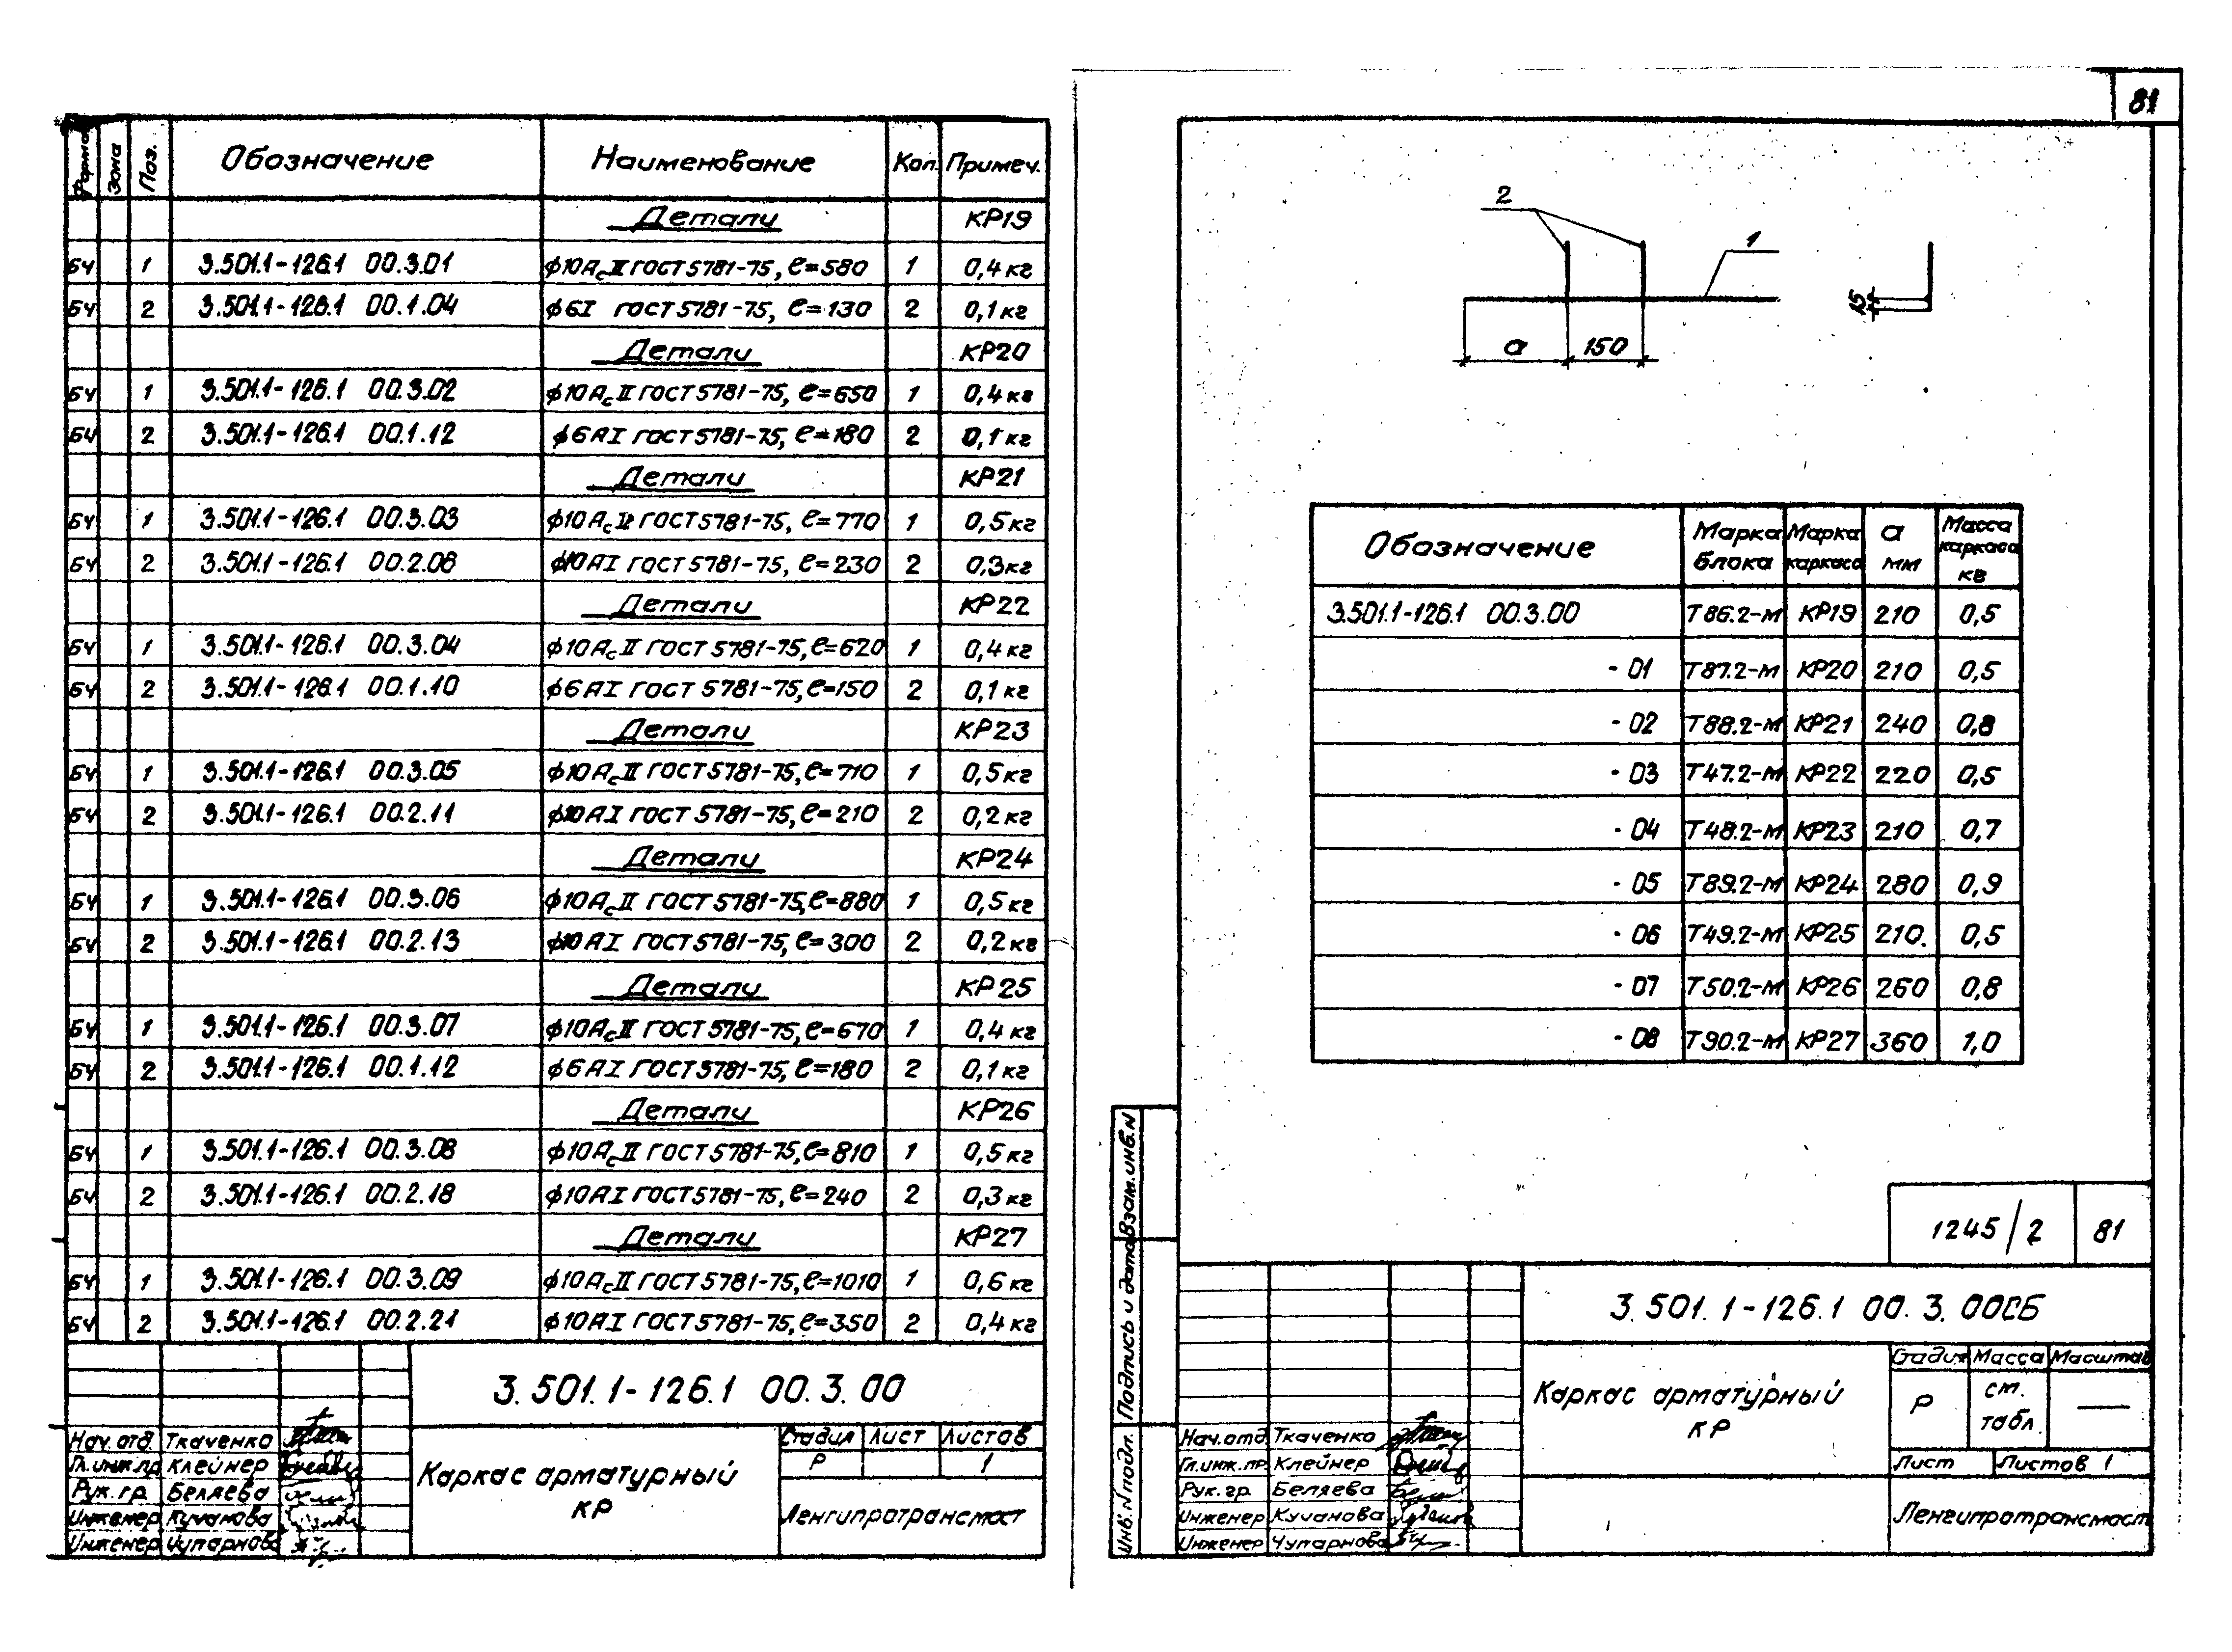 Форма Зона Поз. Обозначение Наименование Кол. Примеч.
Детали КР19
БЧ 1 3.501.1-126.1 00.3.01 ϕ10АсII ГОСТ 5781-75, ℓ=580 1 0,4 кг
БЧ 2 3.501.1-126.1 00.1.04 ϕ6I ГОСТ 5781-75, ℓ=130 2 0,1 кг
Детали КР20
БЧ 1 3.501.1-126.1 00.3.02 ϕ10АсII ГОСТ 5781-75, ℓ=650 1 0,4 кг
БЧ 2 3.501.1-126.1 00.1.12 ϕ6АI ГОСТ 5781-75, ℓ=180 2 0,1 кг
Детали КР21
БЧ 1 3.501.1-126.1 00.3.03 ϕ10АсII ГОСТ 5781-75, ℓ=770 1 0,5 кг
БЧ 2 3.501.1-126.1 00.2.06 ϕ10АI ГОСТ 5781-75, ℓ=230 2 0,3 кг
Детали КР22
БЧ 1 3.501.1-126.1 00.3.04 ϕ10АсII ГОСТ 5781-75, ℓ=620 1 0,4 кг
БЧ 2 3.501.1-126.1 00.1.10 ϕ6АI ГОСТ 5781-75, ℓ=150 2 0,1 кг
Детали КР23
БЧ 1 3.501.1-126.1 00.3.05 ϕ10АсII ГОСТ 5781-75, ℓ=710 1 0,5 кг
БЧ 2 3.501.1-126.1 00.2.11 ϕ10АI ГОСТ 5781-75, ℓ=210 2 0,2 кг
Детали КР24
БЧ 1 3.501.1-126.1 00.3.06 ϕ10АсII ГОСТ 5781-75, ℓ=880 1 0,5 кг
БЧ 2 3.501.1-126.1 00.2.13 ϕ10АI ГОСТ 5781-75, ℓ=300 2 0,2 кг
Детали КР25
БЧ 1 3.501.1-126.1 00.3.07 ϕ10АсII ГОСТ 5781-75, ℓ=670 1 0,4 кг
БЧ 2 3.501.1-126.1 00.1.12 ϕ6АI ГОСТ 5781-75, ℓ=180 2 0,1 кг
Детали КР26
БЧ 1 3.501.1-126.1 00.3.08 ϕ10АсII ГОСТ 5781-75, ℓ=810 1 0,5 кг
БЧ 2 3.501.1-126.1 00.2.18 ϕ10АI ГОСТ 5781-75, ℓ=240 2 0,3 кг
Детали КР27
БЧ 1 3.501.1-126.1 00.3.09 ϕ10АсII ГОСТ 5781-75, ℓ=1010 1 0,6 кг
БЧ 2 3.501.1-126.1 00.2.21 ϕ10АI ГОСТ 5781-75, ℓ=350 2 0,4 кг
3.501.1-126.1 00.3.00
Нач.отд. Ткаченко
Гл.инж.пр. Клейнер
Рук.гр. Беляева
Инженер Кучанова
Инженер Чупарнова
Каркас арматурный
КР
Стадия Лист Листов
Р 1
Ленгипротрансмост
81
2
1
15
а 150
Обозначение Марка блока Марка каркаса а мм Масса каркаса кг
3.501.1-126.1 00.3.00 Т86.2-м КР19 210 0,5
- 01 Т87.2-м КР20 210 0,5
- 02 Т88.2-м КР21 240 0,8
- 03 Т47.2-м КР22 220 0,5
- 04 Т48.2-м КР23 210 0,7
- 05 Т89.2-м КР24 280 0,9
- 06 Т49.2-м КР25 210. 0,5
- 07 Т50.2-м КР26 260 0,8
- 08 Т90.2-м КР27 360 1,0
Инв.N подл. Подпись и дата Взам.инв.N
1245/2 81
3.501.1-126.1 00.3.00СБ
Нач.отд. Ткаченко
Гл.инж.пр. Клейнер
Рук.гр. Беляева
Инженер Кучанова
Инженер Чупарнова
Каркас арматурный
КР
Стадия Масса Масштаб
Р см. табл. —
Лист Листов 1
Ленгипротрансмост